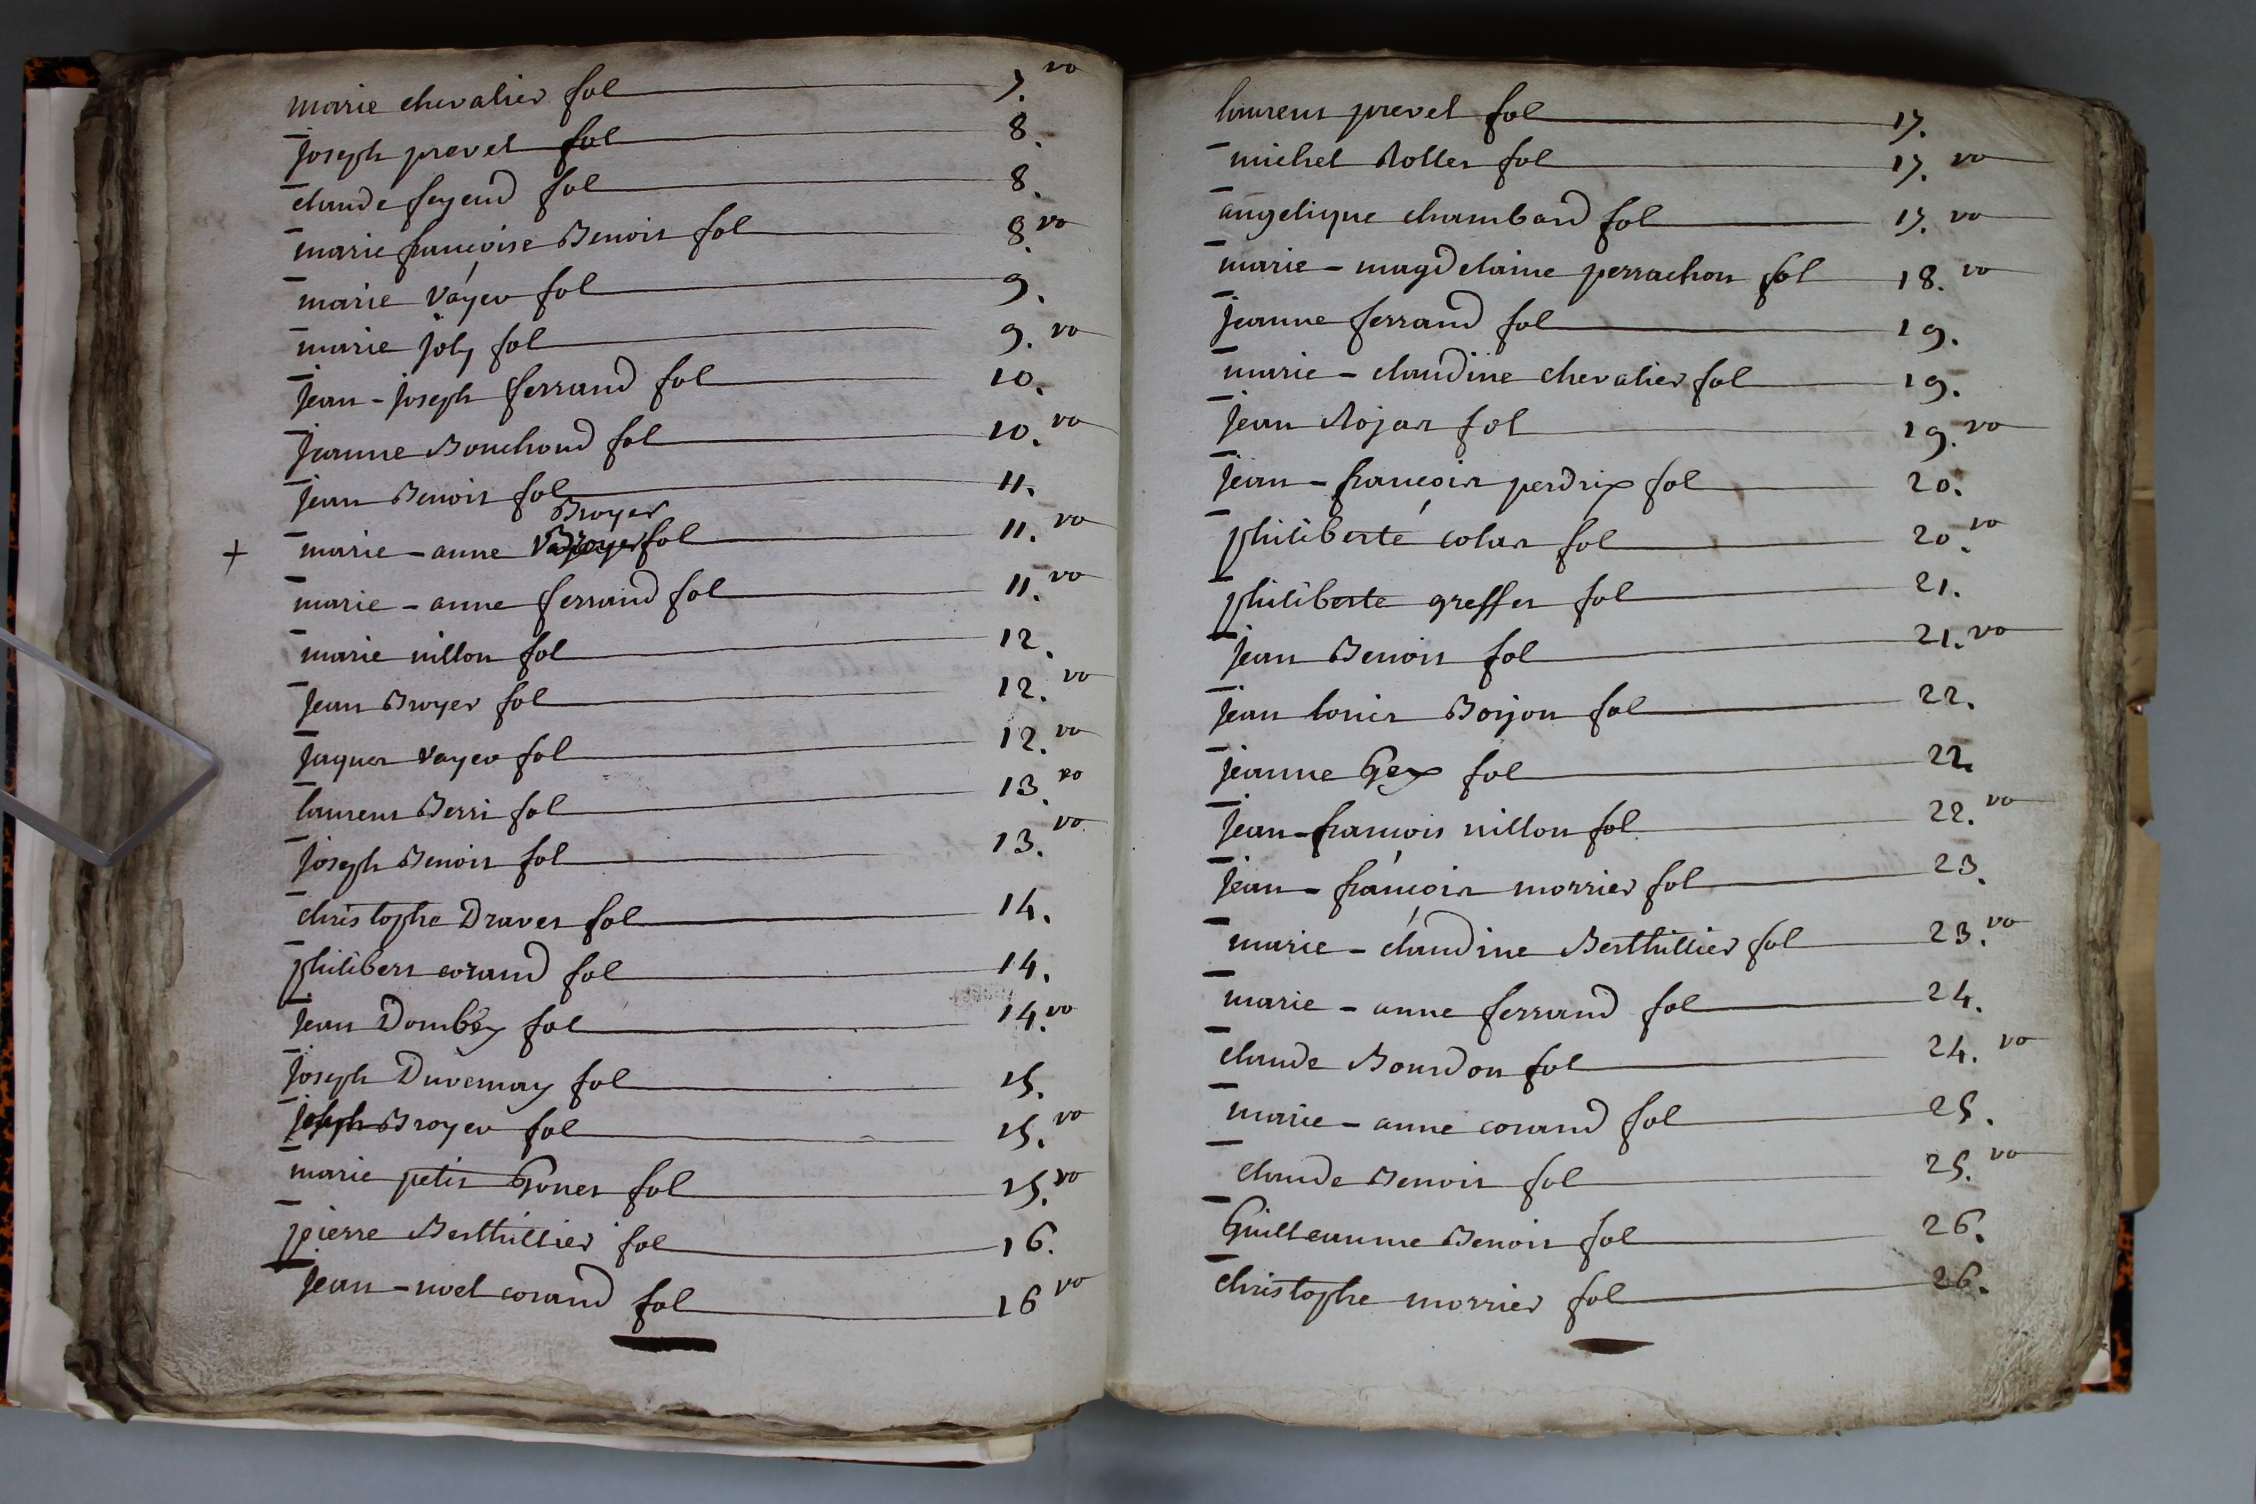 marie chevalier fol 7. vo
joseph prevet fol 8.
claude feyend fol 8.
marie francoise Benoit fol 8. vo
marie váyer fol 9.
marie joly fol 9. vo
jean - joseph ferrand fol 10.
jeanne Bouchoud fol 10. vo
jean Benoit fol 11.
Broyer
+ marie - anne fol 11. vo
marie - anne ferrand fol 11. vo
marie nillon fol 12.
jean Broyer fol 12. vo
jaques vayer fol 12. vo
laurent Berri fol 13. vo
joseph Benoit fol 13. vo
christophe Dravet fol 14.
philibert corand fol 14.
jean Dombey fol 14. vo
joseph Duvernay fol 15.
joseph Broyer fol 15. vo
marie petit Gonet fol 15. vo
pierre Berthillier fol 16.
jean - noel corand fol 16 vo
laurent prevet fol 17.
michel Rollet fol 17. vo
angelique chambard fol 17. vo
marie - magdelaine perrachon fol 18. vo
jeanne ferrand fol 19.
marie - claudine chevalier fol 19.
jean Rojat fol 19. vo
jean - francois perdrix fol 20.
philiberte colas fol 20. vo
philiberte greffet fol 21.
jean Benoit fol 21. vo
jean louis Boijon fol 22.
jeanne Gex fol 22.
jean - francois nillon fol 22. vo
jean - francois morrier fol 23.
marie - claudine Berthillier fol 23. vo
marie - anne ferrand fol 24.
claude Bourdon fol 24. vo
marie - anne corand fol 25.
claude Benoit fol 25. vo
Guilleaume Benoit fol 26.
christophe morrier fol 26.